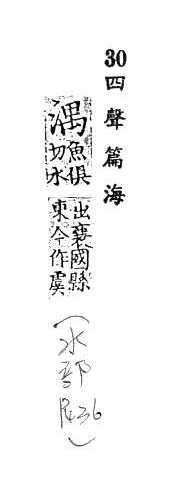 30 四聲篇海
湡 魚俱
切水
出襄國縣
東今作虞
(水部 P436)